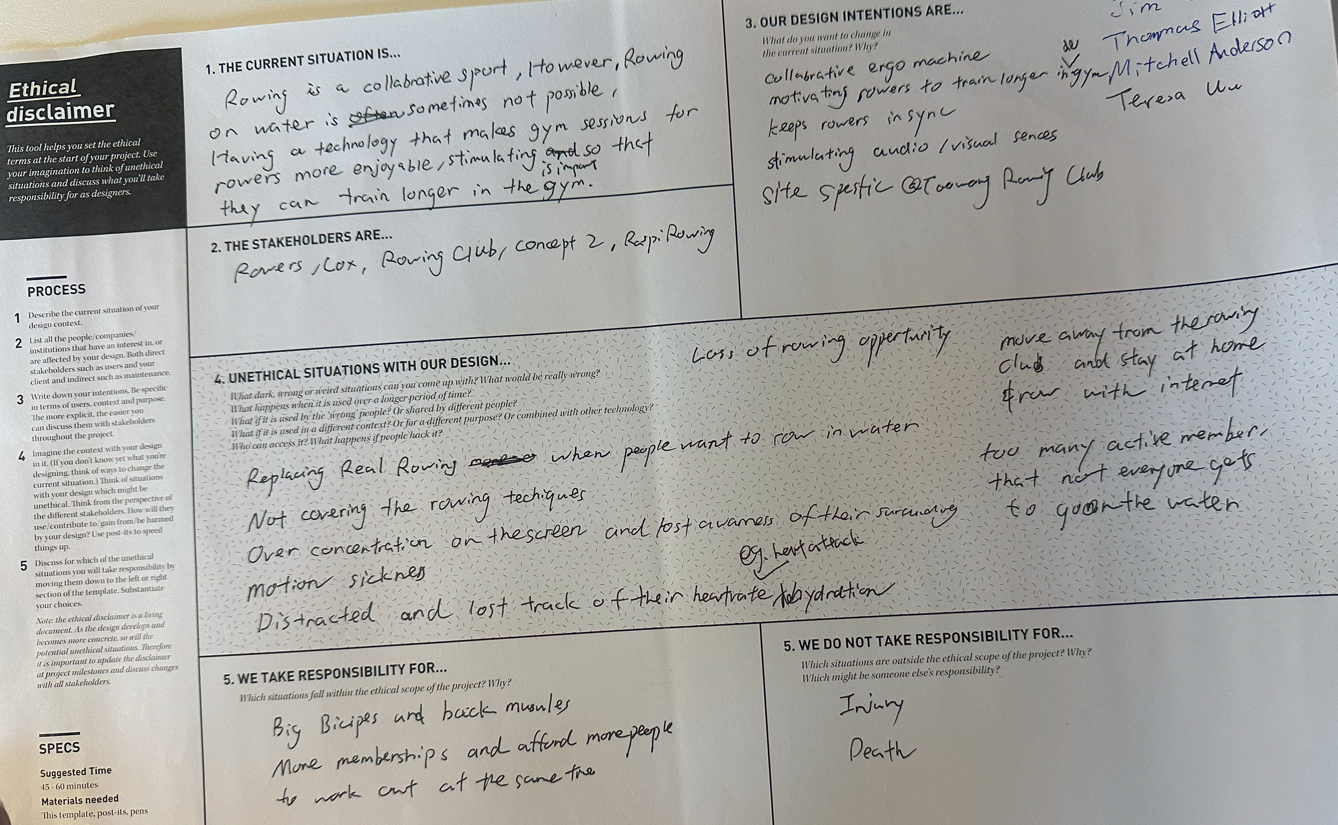 Ethical
disclaimer
This tool helps you set the ethical
terms at the start of your project. Use
your imagination to think of unethical
situations and discuss what you'll take
responsibility for as designers.
PROCESS
1 Describe the current situation of your
design context.
2 List all the people/companies/
institutions that have an interest in, or
are affected by your design. Both direct
stakeholders such as users and your
client and indirect such as maintenance.
3 Write down your intentions. Be specific
in terms of users, context and purpose.
The more explicit, the easier you
can discuss them with stakeholders
throughout the project.
4 Imagine the context with your design
in it. (If you don't know yet what you're
designing, think of ways to change the
current situation.) Think of situations
with your design which might be
unethical. Think from the perspective of
the different stakeholders. How will they
use/contribute to/gain from/be harmed
by your design? Use post-its to speed
things up.
5 Discuss for which of the unethical
situations you will take responsibility by
moving them down to the left or right
section of the template. Substantiate
your choices.
Note: the ethical disclaimer is a living
document. As the design develops and
becomes more concrete, so will the
potential unethical situations. Therefore
it is important to update the disclaimer
at project milestones and discuss changes
with all stakeholders.
SPECS
Suggested Time
45 - 60 minutes
Materials needed
This template, post-its, pens
1. THE CURRENT SITUATION IS...
Rowing is a collabrative sport, However, Rowing
on water is often sometimes not possible,
Having a technology that makes gym sessions for
rowers more enjoyable, stimulating and so that
is import
they can train longer in the gym.
2. THE STAKEHOLDERS ARE...
Rowers, Cox, Rowing Club, Concept 2, RaspiRowing
3. OUR DESIGN INTENTIONS ARE...
What do you want to change in
the current situation? Why?
collabrative ergo machine
motivating rowers to train longer in gym
keeps rowers in sync
stimulating audio / visual sences
Site spesfic @Toowong Rowing Club
Jim
Thommas Elliott
Mitchell Anderson
Teresa
4. UNETHICAL SITUATIONS WITH OUR DESIGN...
What dark, wrong or weird situations can you come up with? What would be really wrong?
What happens when it is used over a longer period of time?
What if it is used by the 'wrong' people? Or shared by different people?
What if it is used in a different context? Or for a different purpose? Or combined with other technology?
Who can access it? What happens if people hack it?
Replacing Real Rowing when people want to row in water
Not covering the rowing techiques
Over concentration on the screen and lost awarness of their surounding
motion sicknes
eg. heart attack
Distracted and lost track of their heartrate / dehydration
Loss of rowing oppertunity
move away from the rowing
club and stay at home
& row with internet
too many active member,
that not everyone gets
to go on the water
5. WE TAKE RESPONSIBILITY FOR...
Which situations fall within the ethical scope of the project? Why?
Big Bicipes and back musules
More memberships and afford more people
to work out at the same time
5. WE DO NOT TAKE RESPONSIBILITY FOR...
Which situations are outside the ethical scope of the project? Why?
Which might be someone else's responsibility?
Injury
Death